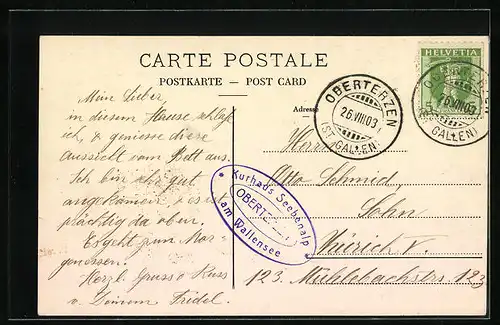 CARTE POSTALE
POSTKARTE — POST CARD
HELVETIA
OBERTERZEN
26.VIII.03
(ST. GALLEN)
26.VIII.03
GALLEN)
Adresse
Mein Lieber,
in diesem Hause schlaf
ich, & geniesse diese
Aussicht vom Bett aus.
Ich bin sehr gut
angekommen, es ist
prächtig da oben.
Es geht zum Mor-
genessen.
Herzl. Gruss & Kuss
v. Deinem Fridel.
Kurhaus Seebenalp
OBERT
am Wallensee
Herrn
Otto Schmid,
Sohn
Zürich V.
123. Mühlebachstrs 123